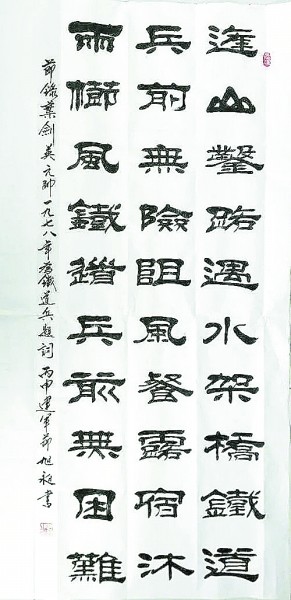 逢山鑿路遇水架橋鐵道
兵前無險阻風餐露宿沐
雨櫛風鐵道兵前無困難
節錄葉劍英元帥一九七八年為鐵道兵題詞 丙申建軍節 旭昶書